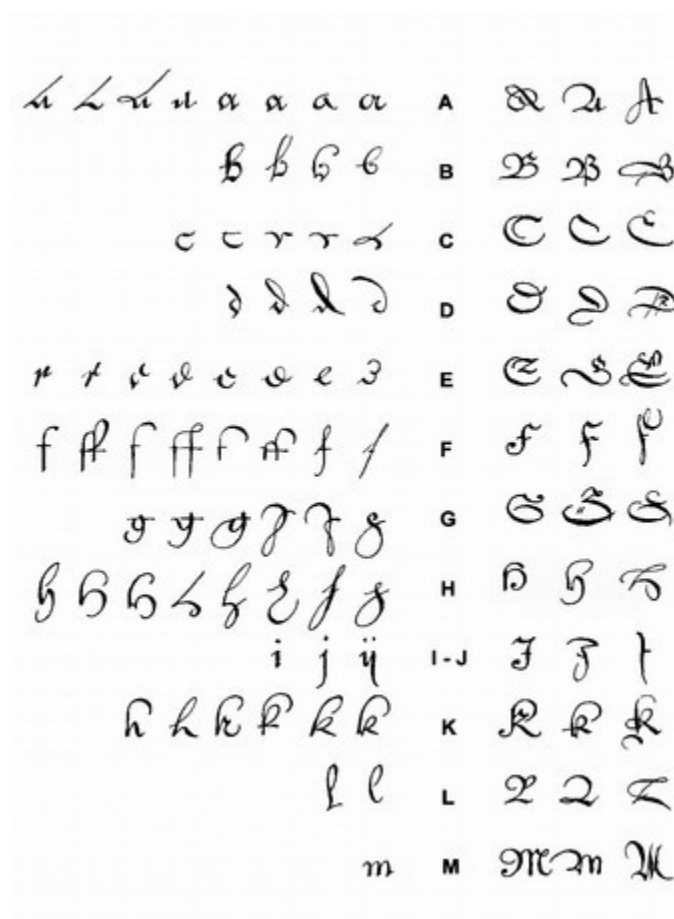 a a a a a a a a A A A A
b b b b B B B B
c c c c c C C C C
d d d d D D D D
e e e e e e e e E E E E
f ff f ff f ff f f F F F F
g g g g g g G G G G
h h h h h h h h H H H H
i j ij I - J I J J
k k k k k k K K K K
l l L L L L
m M M M M